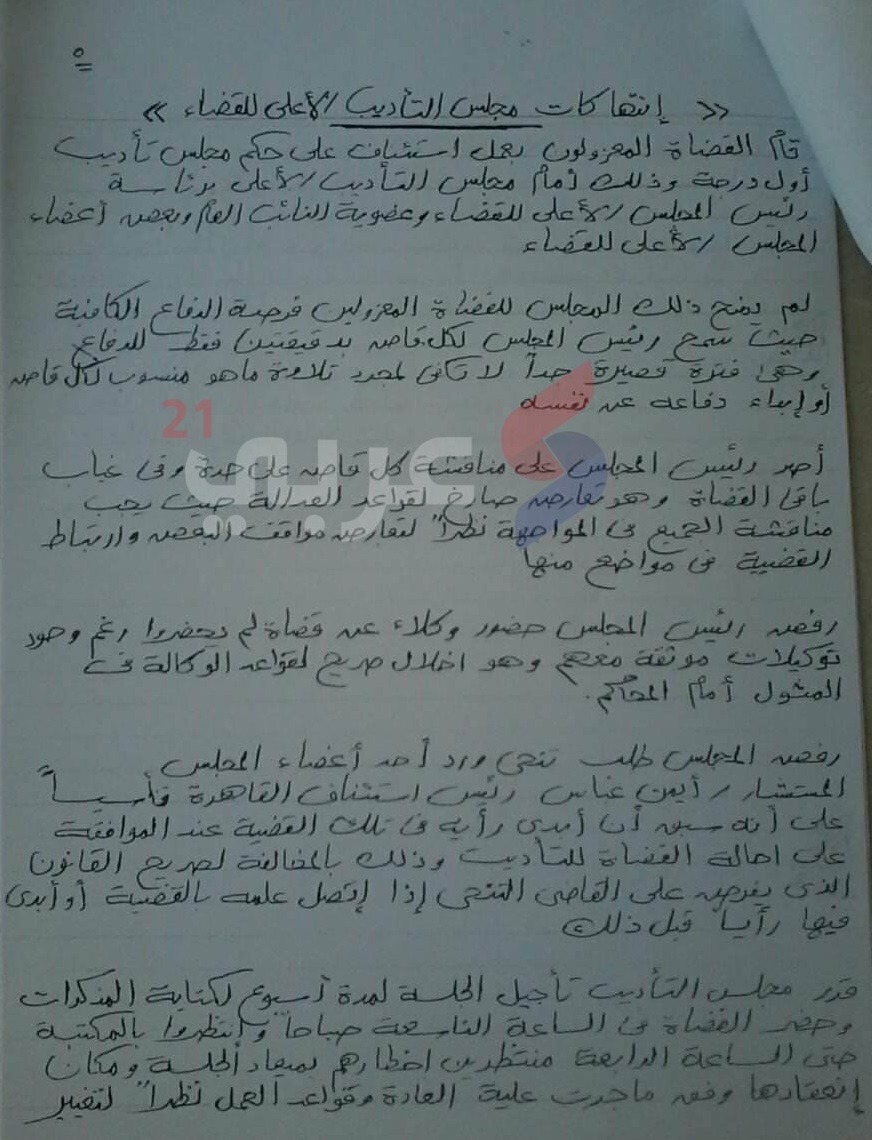 ٥
« إنتهاكات مجلس التأديب الأعلى للقضاء »
قام القضاة المعزولون بعمل استئناف على حكم مجلس تأديب
أول درجة وذلك أمام مجلس التأديب الأعلى برئاسة
رئيس المجلس الأعلى للقضاء وعضوية النائب العام وبعض أعضاء
المجلس الأعلى للقضاء
لم يمنح ذلك المجلس للقضاة المعزولين فرصة الدفاع الكافية
حيث سمح رئيس المجلس لكل قاض بدقيقتين فقط للدفاع
وهى فترة قصيرة جداً لا تكفى لمجرد تلاوة ماهو منسوب لكل قاض
أو إبداء دفاعه عن نفسه
21
عربي
أصر رئيس المجلس على مناقشة كل قاض على حدة وفى غياب
باقى القضاة وهو تعارض صارخ لقواعد العدالة حيث يجب
مناقشة الجميع فى المواجهة نظراً لتعارض مواقف البعض وارتباط
القضية فى مواضع منها
رفض رئيس المجلس حضور وكلاء عن قضاة لم يحضروا رغم وجود
توكيلات موثقة معهم وهو اخلال صريح لقواعد الوكالة فى
المثول أمام المحاكم.
رفض المجلس طلب تنحى ورد أحد أعضاء المجلس
المستشار / أيمن عباس رئيس استئناف القاهرة تأسيساً
على أنه سبق أن أبدى رأيه فى تلك القضية عند الموافقة
على احالة القضاة للتأديب وذلك بالمخالفة لصريح القانون
الذى يفرض على القاضى التنحى إذا إتصل علمه بالقضية أو أبدى
فيها رأياً قبل ذلك
قرر مجلس التأديب تأجيل الجلسة لمدة أسبوع لكتابة المذكرات
وحضر القضاة فى الساعة التاسعة صباحاً وانتظروا بالمكتبة
حتى الساعة الرابعة منتظرين اخطارهم بميعاد الجلسة ومكان
إنعقادها وفق ماجرت علية العادة وقواعد العمل نظراً لتغيير